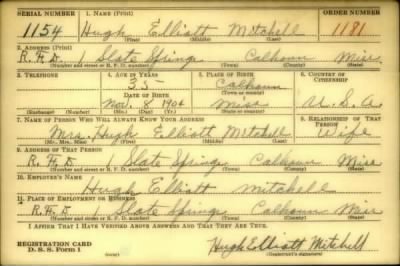 SERIAL NUMBER 1. NAME (Print) ORDER NUMBER
1154 Hugh Elliott Mitchell 1181
(First) (Middle) (Last)
2. ADDRESS (Print)
R.F.D. Slate Springs Calhoun Miss.
(Number and street or R. F. D. number) (Town) (County) (State)
3. TELEPHONE 4. AGE IN YEARS 5. PLACE OF BIRTH 6. COUNTRY OF CITIZENSHIP
35 Calhoun
DATE OF BIRTH (Town or county)
Nov. 8 1904 Miss U.S.A.
(Exchange) (Number) (Mo.) (Day) (Yr.) (State or country)
7. NAME OF PERSON WHO WILL ALWAYS KNOW YOUR ADDRESS 8. RELATIONSHIP OF THAT PERSON
Mrs. Hugh Elliott Mitchell Wife
(Mr., Mrs., Miss) (First) (Middle) (Last)
9. ADDRESS OF THAT PERSON
R.F.D. Slate Springs Calhoun Miss
(Number and street or R. F. D. number) (Town) (County) (State)
10. EMPLOYER'S NAME
Hugh Elliott Mitchell
11. PLACE OF EMPLOYMENT OR BUSINESS
R.F.D. Slate Springs Calhoun Miss
(Number and street or R. F. D. number) (Town) (County) (State)
I AFFIRM THAT I HAVE VERIFIED ABOVE ANSWERS AND THAT THEY ARE TRUE.
REGISTRATION CARD
D. S. S. Form 1 Hugh Elliott Mitchell
(Registrant's signature)